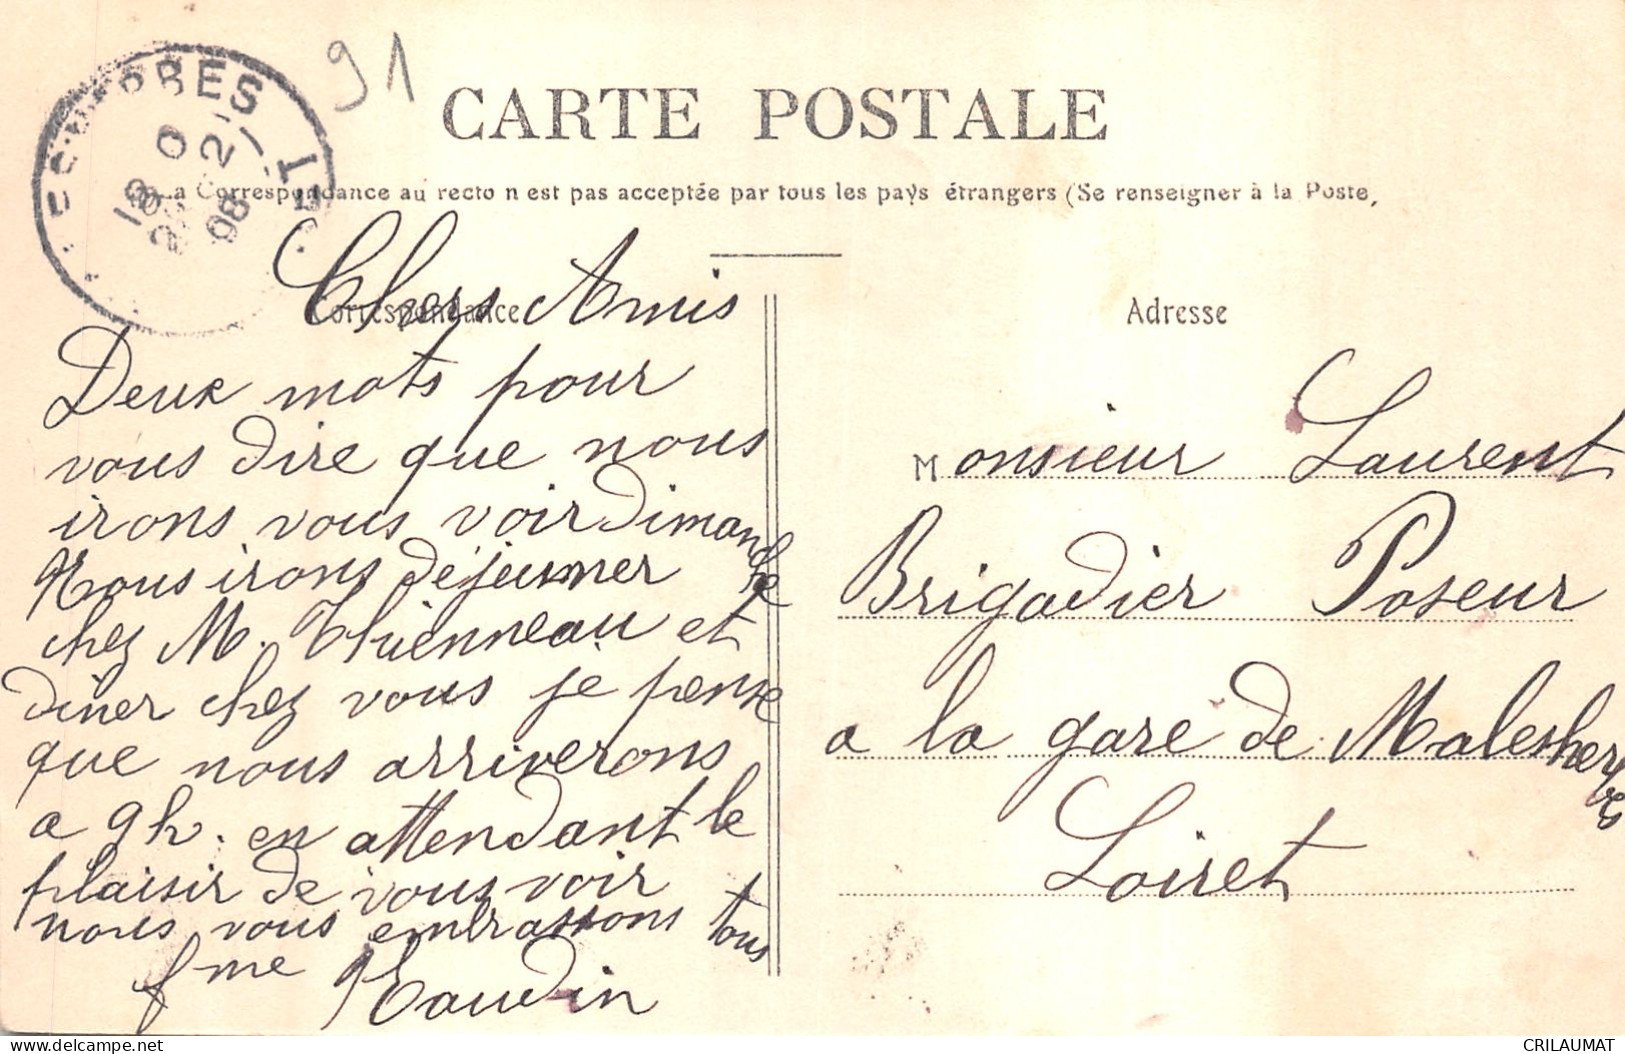 91
CARTE POSTALE
La Correspondance au recto n est pas acceptée par tous les pays étrangers (Se renseigner à la Poste,
Correspondance
Adresse
Chers Amis
Deux mots pour
vous dire que nous
irons vous voir dimanche
Nous irons déjeuner
chez M. Thienneau et
diner chez vous je pense
que nous arriverons
a 9h. en attendant le
plaisir de vous voir
nous vous embrassons tous
fme
Monsieur Laurent
Brigadier Poseur
a la gare de Malesherbes
Loiret
delcampe.net
CRILAUMAT